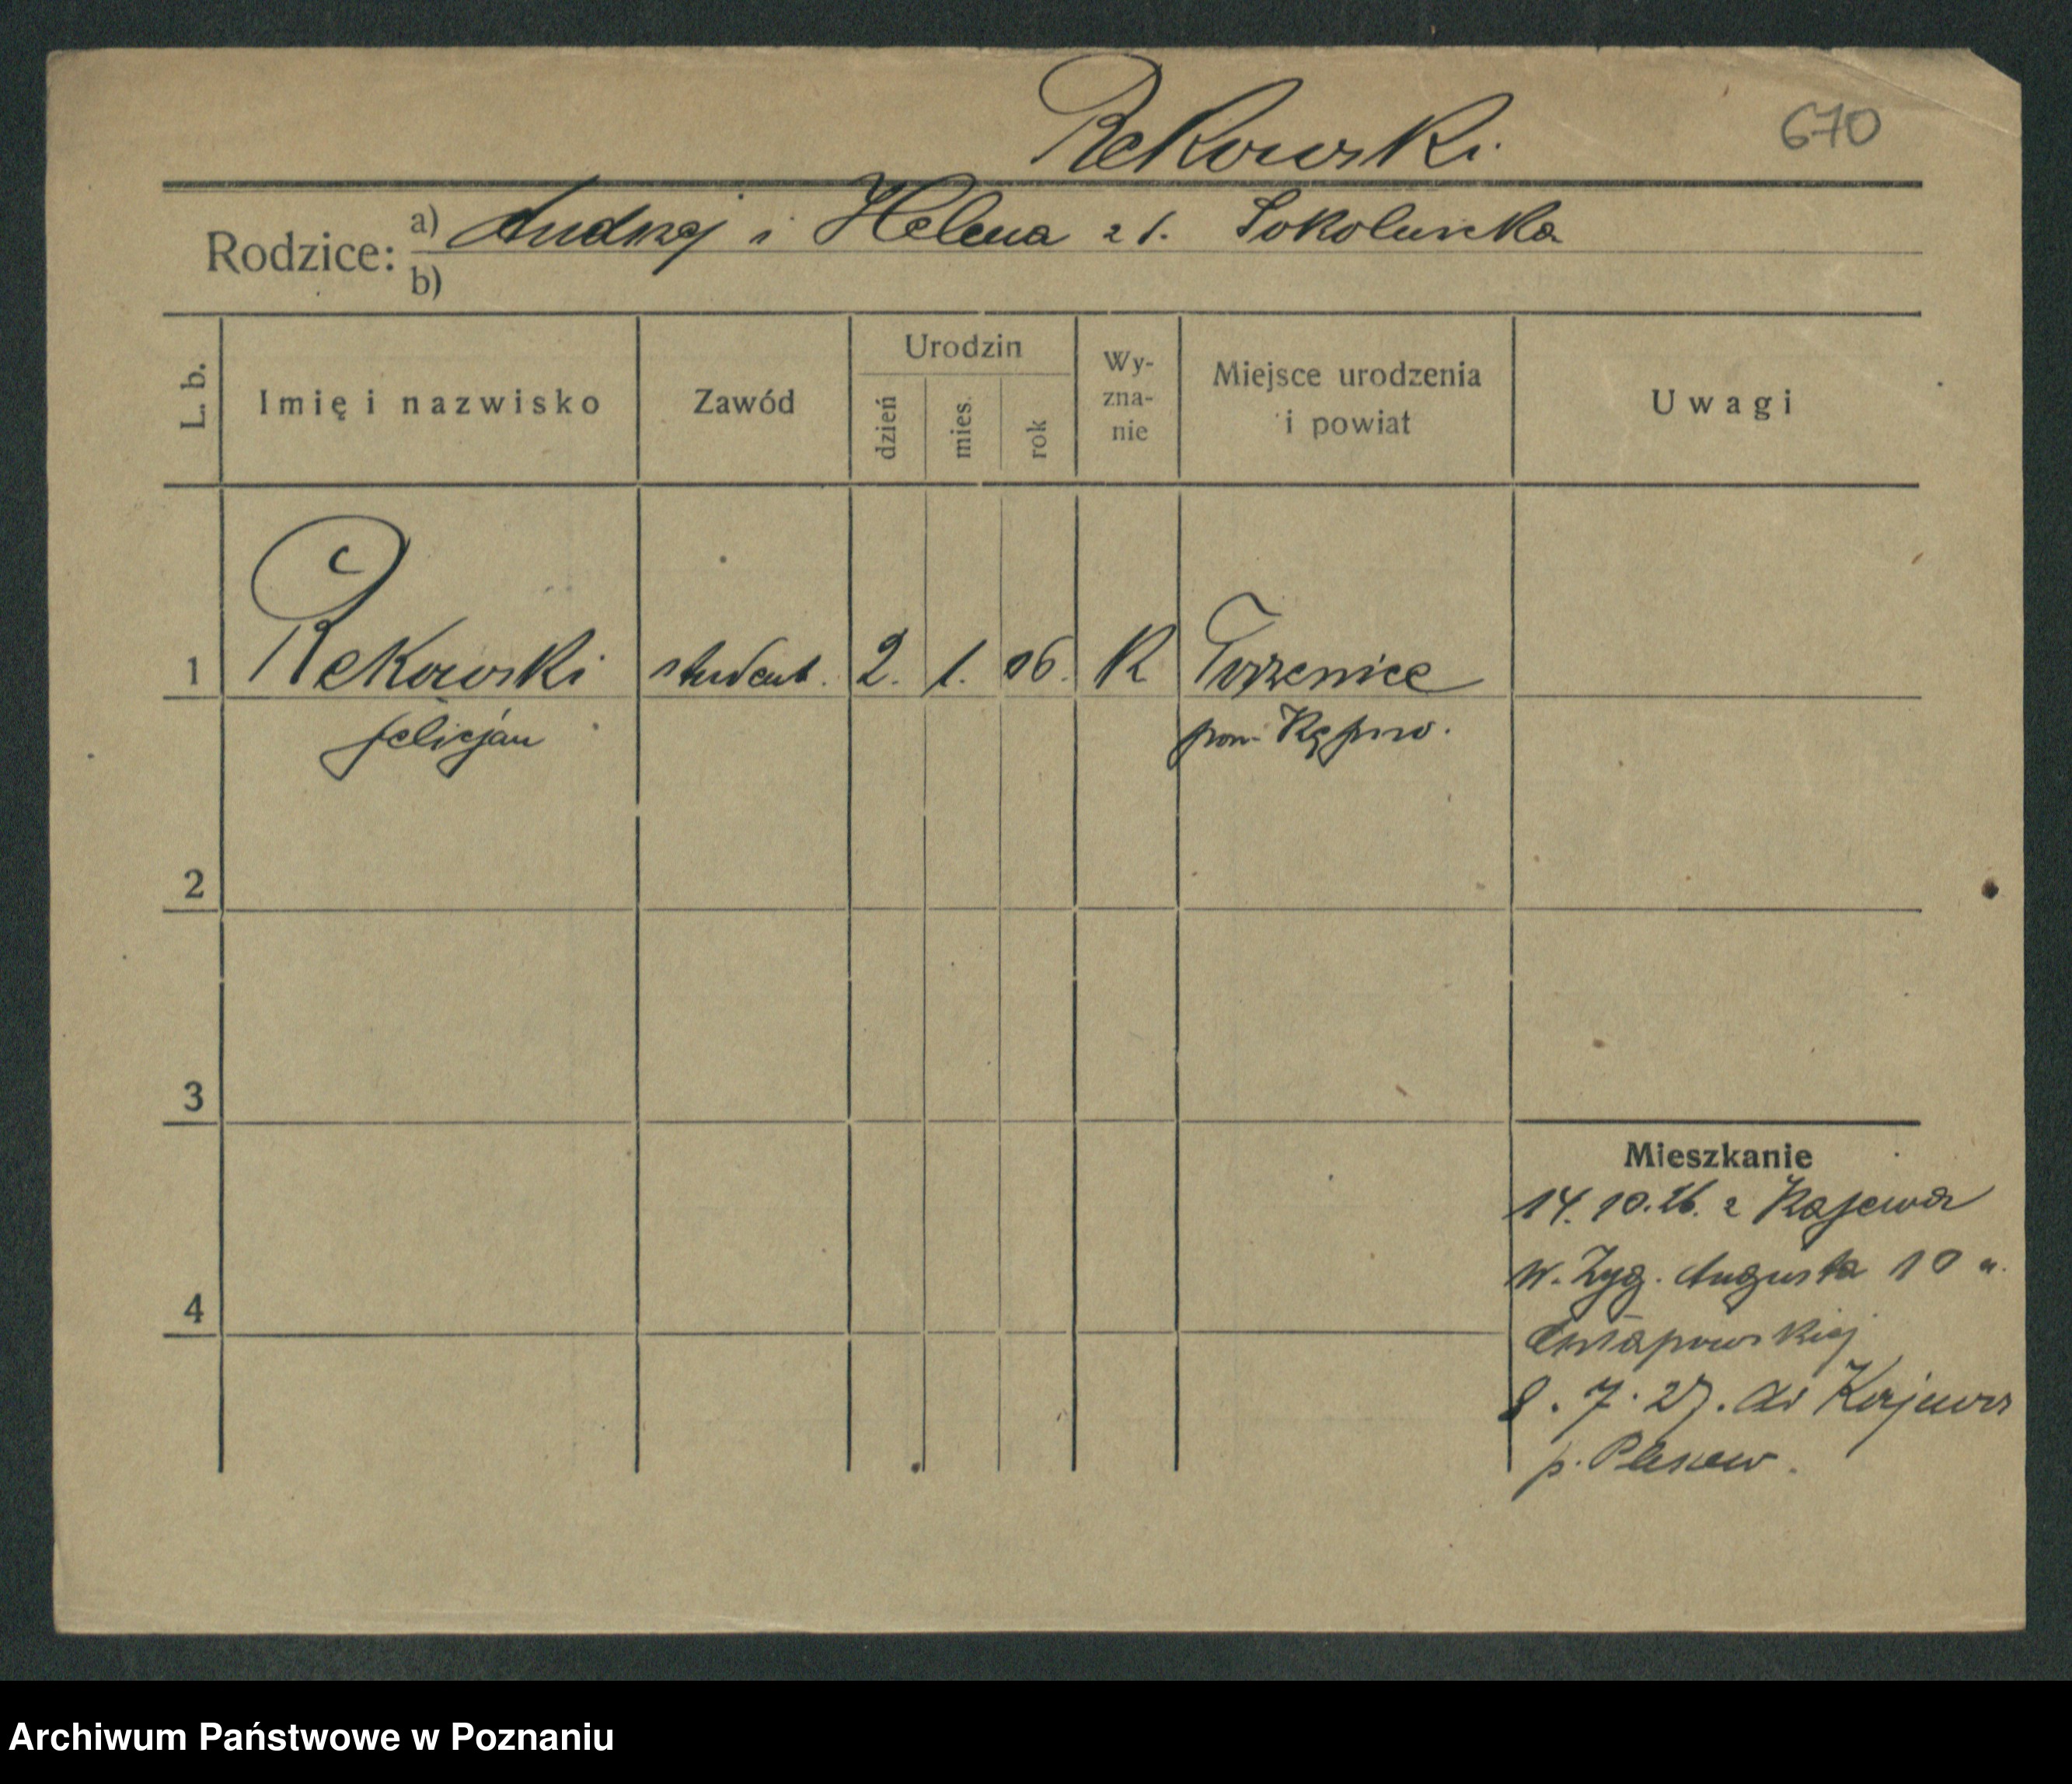 Rekowski.
670
Rodzice: a) Andrzej i Helena z d. Sokolnicka
b)
L. b. Imię i nazwisko Zawód Urodzin dzień mies. rok Wy-zna-nie Miejsce urodzenia i powiat Uwagi
1 Rekowski student. 2. 1. 06. K
felicjan pow. Kępno.
2
3
Mieszkanie
14. 10. 26. z Kajewa
4
W. Zyg. Augusta 10 u.
Chłapowskiej
8. 7. 27. do Kajewa
p. Plesew.
Archiwum Państwowe w Poznaniu